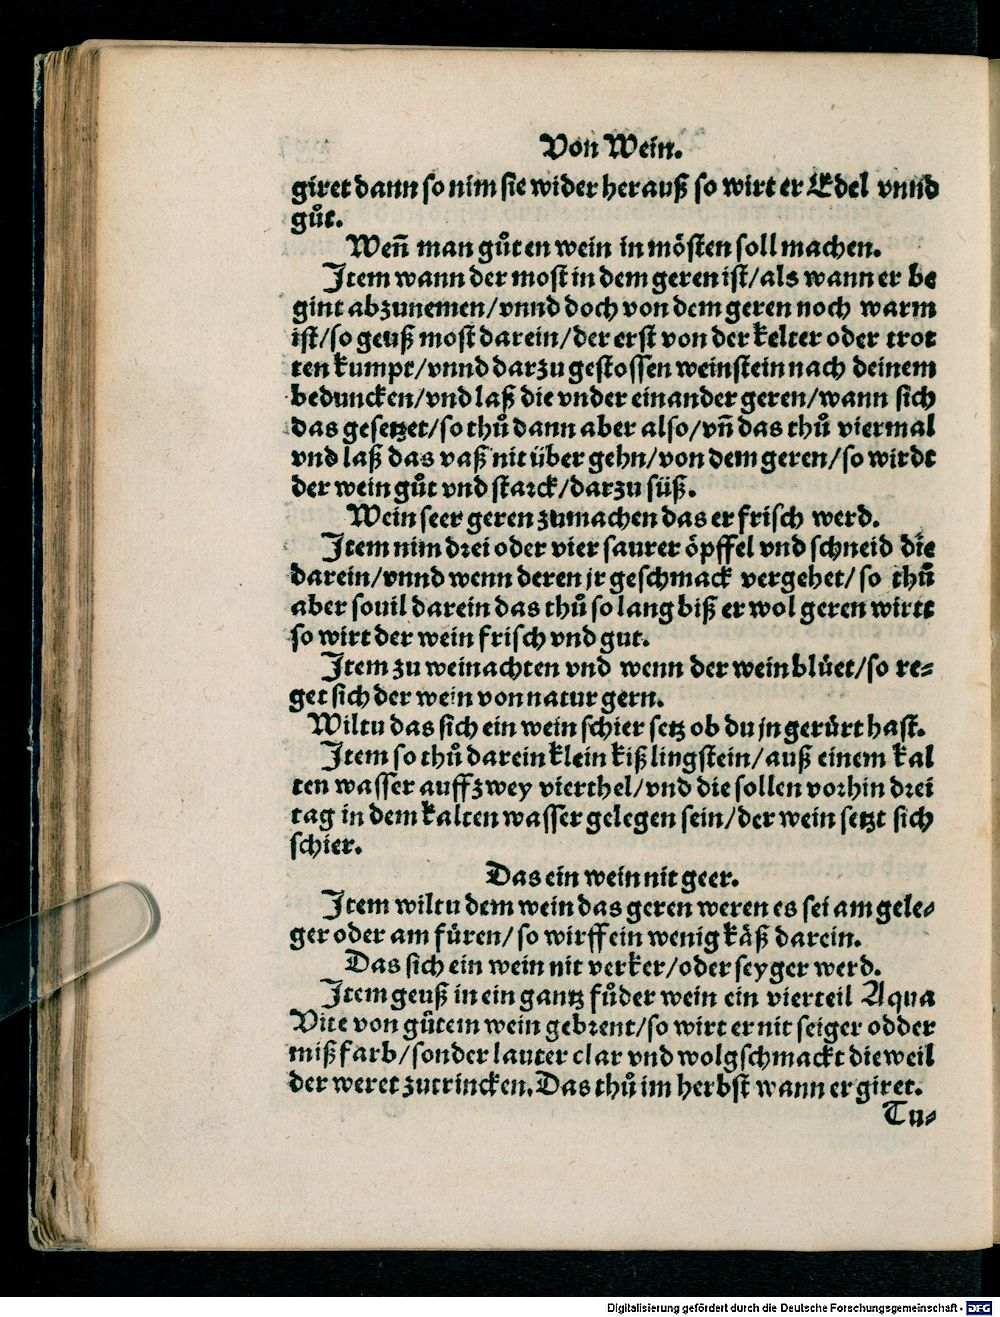 Von Wein.
giret dann so nim sie wider herauß so wirt er Edel vnnd
gůt.
Weñ man gůten wein in mösten soll machen.
Item wann der most in dem geren ist/als wann er be
gint abzunemen/vnnd doch von dem geren noch warm
ist/so geuß most darein/der erst von der kelter oder trot
ten kumpt/vnnd darzu gestossen weinstein nach deinem
beduncken/vnd laß die vnder einander geren/wann sich
das gesetzet/so thů dann aber also/vñ das thů viermal
vnd laß das vaß nit über gehn/von dem geren/so wirdt
der wein gůt vnd starck/darzu süß.
Wein seer geren zumachen das er frisch werd.
Item nim drei oder vier saurer öpffel vnd schneid die
darein/vnnd wenn deren jr geschmack vergehet/so thů
aber souil darein das thů so lang biß er wol geren wirtt
so wirt der wein frisch vnd gut.
Item zu weinachten vnd wenn der wein blüet/so re-
get sich der wein von natur gern.
Wiltu das sich ein wein schier setz ob du jn gerürt hast.
Item so thů darein klein kißlingstein/auß einem kal
ten wasser auff zwey vierthel/vnd die sollen vorhin drei
tag in dem kalten wasser gelegen sein/der wein setzt sich
schier.
Das ein wein nit geer.
Item wiltu dem wein das geren weren es sei am gele-
ger oder am füren/so wirff ein wenig käß darein.
Das sich ein wein nit verker/oder seyger werd.
Item geuß in ein gantz fůder wein ein vierteil Aqua
Vite von gůtem wein gebrent/so wirt er nit seiger odder
mißfarb/sonder lauter clar vnd wolgschmackt dieweil
der weret zutrincken. Das thů im herbst wann er giret.
Tu-
Digitalisierung gefördert durch die Deutsche Forschungsgemeinschaft - DFG